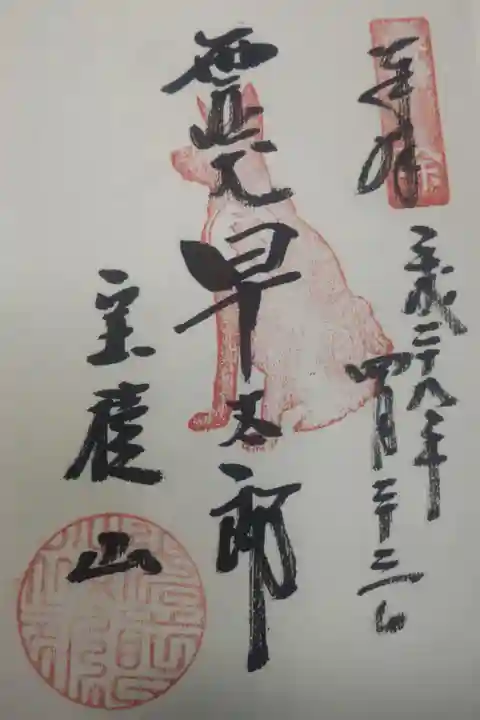 奉拝
平成二十八年
四月二十三日
霊犬早太郎
宝積山